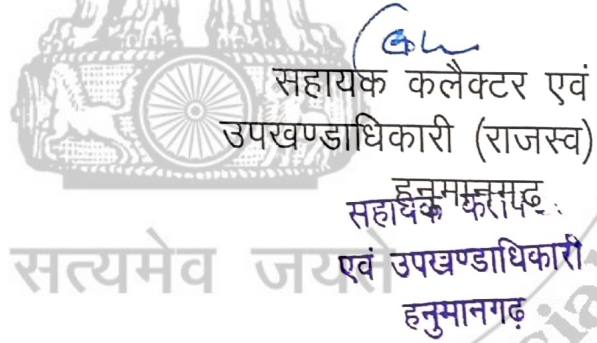 सहायक कलैक्टर एवं
उपखण्डाधिकारी (राजस्व)
हनुमानगढ़
सहायक
एवं उपखण्डाधिकारी
हनुमानगढ़
सत्यमेव जयते